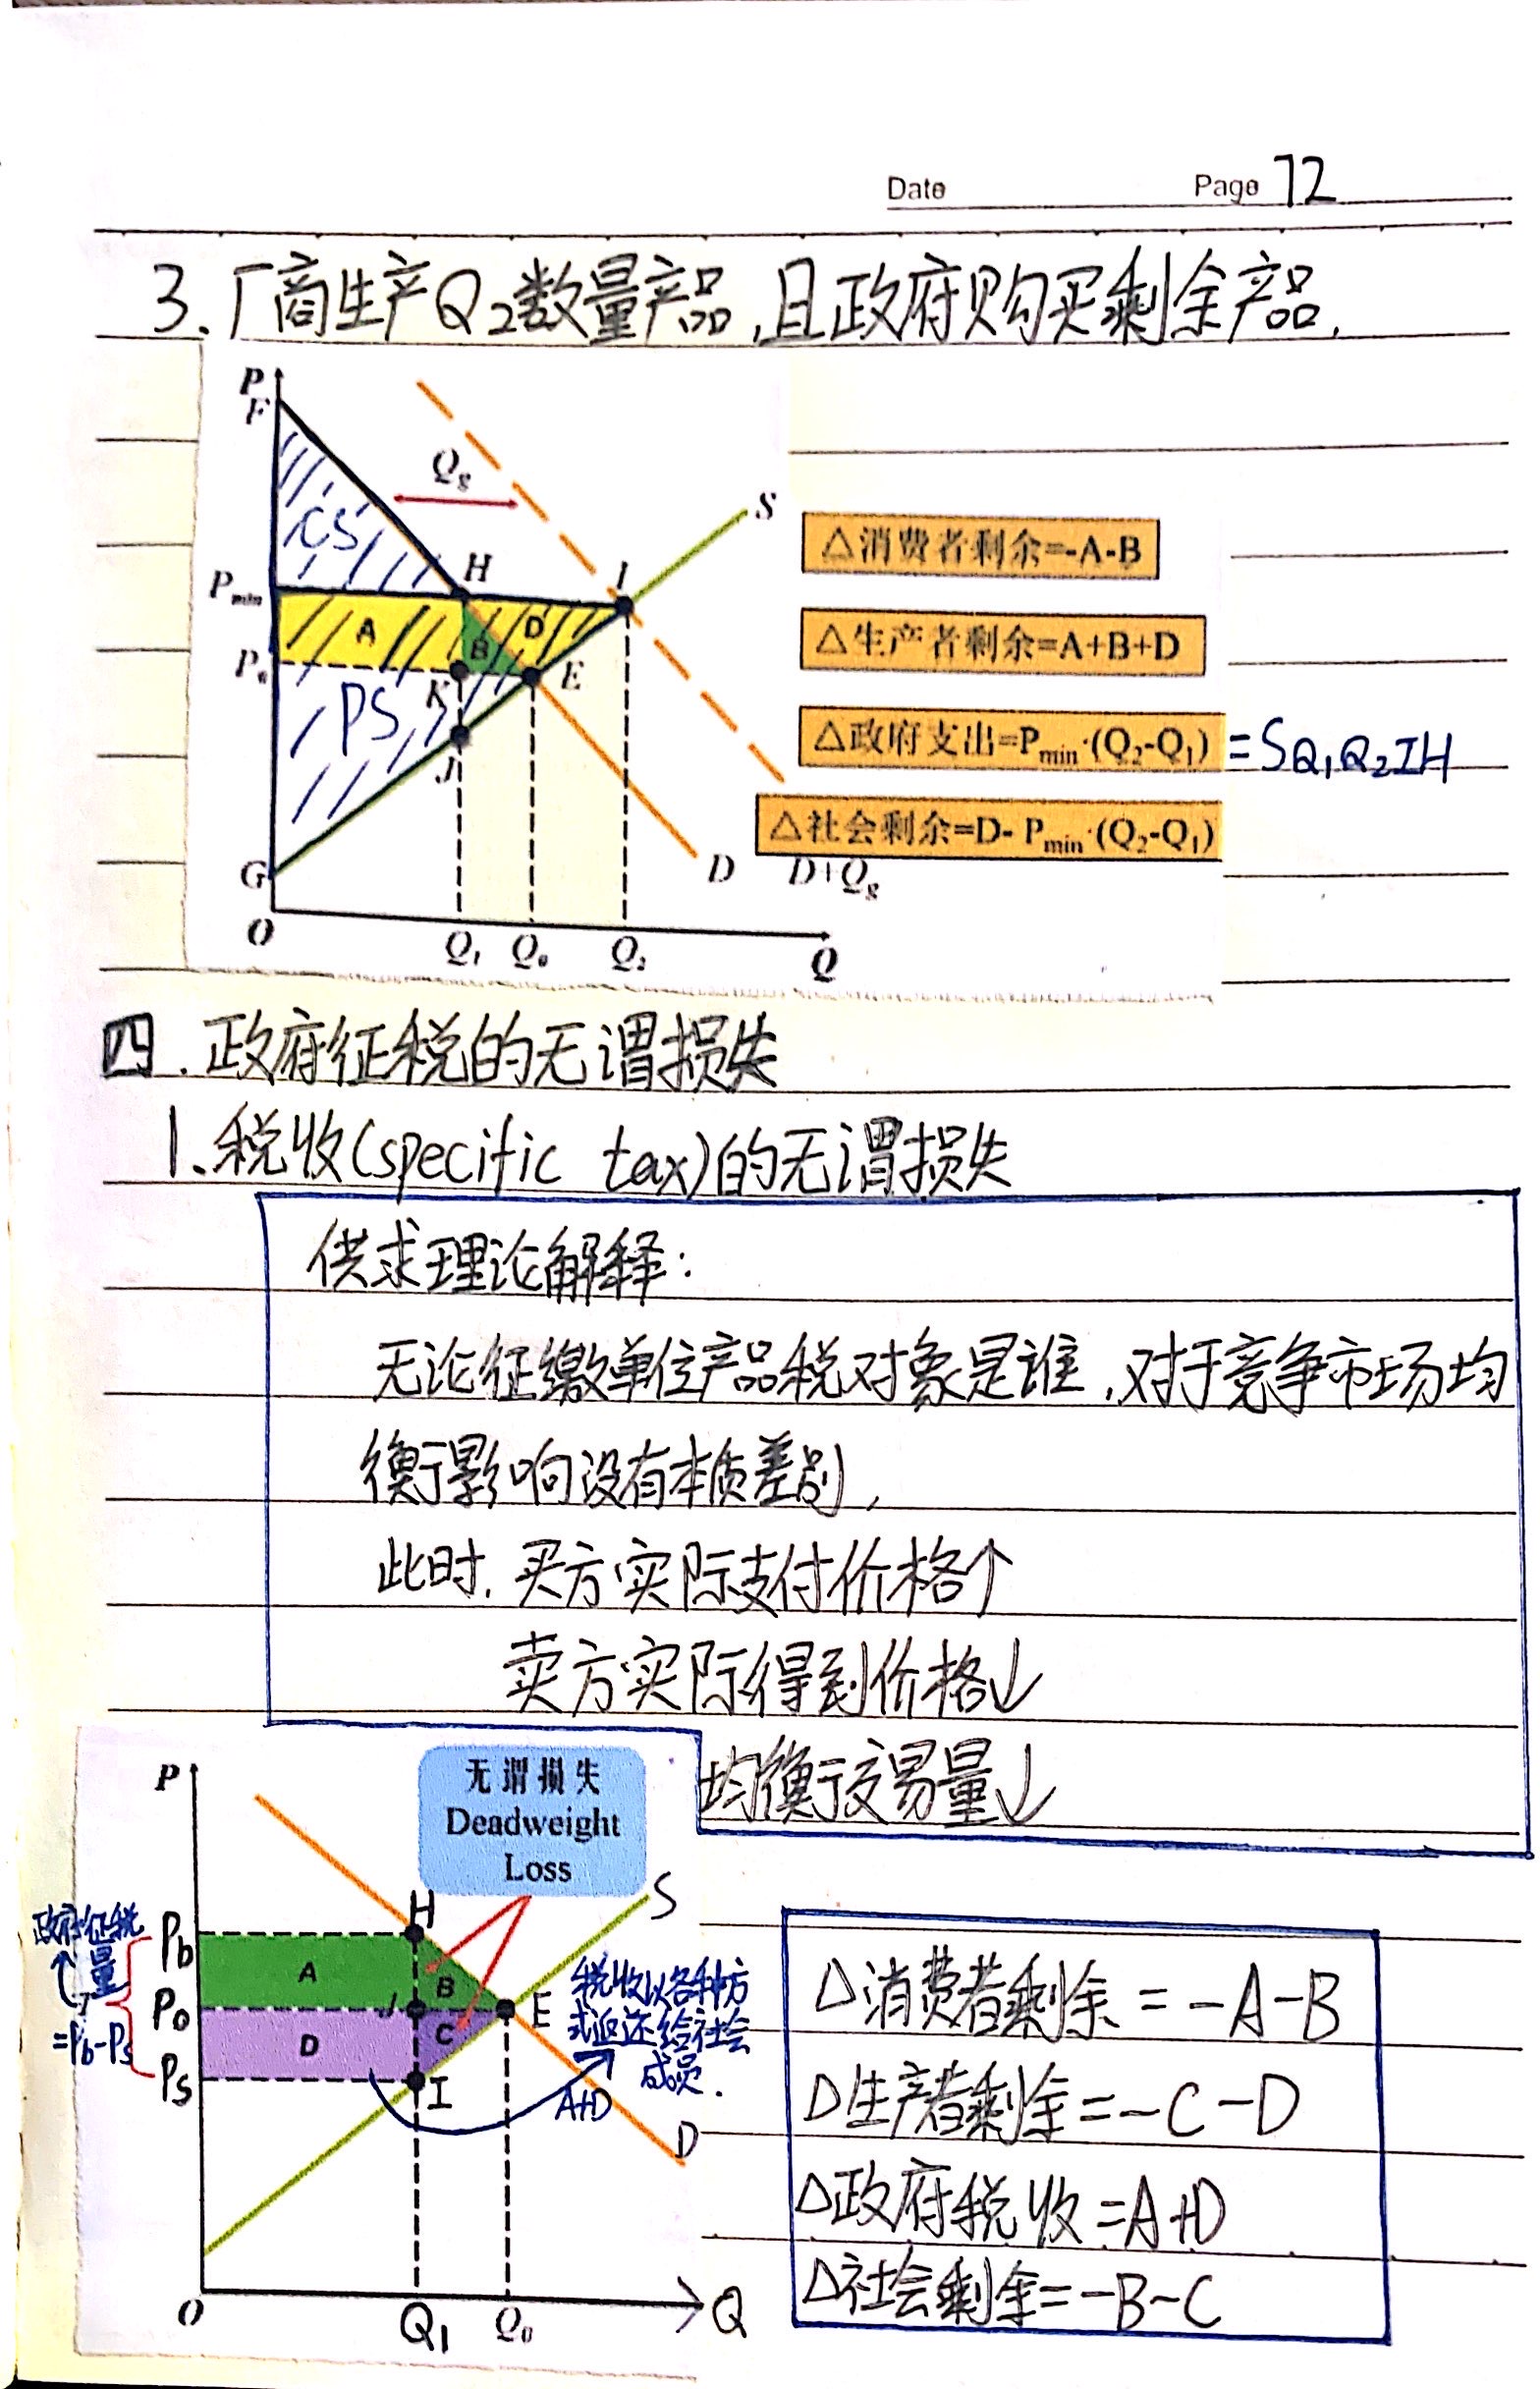 Date Page 72
3. 厂商生产Q₂数量产品,且政府购买剩余产品.
P
F
Qg
CS
S
H
I
Pmin
A
B
D
P₀
K
E
PS
J
G
D
D+Qg
O
Q₁
Q₀
Q₂
Q
△消费者剩余=-A-B
△生产者剩余=A+B+D
△政府支出=Pmin·(Q₂-Q₁) =SQ₁Q₂IH
△社会剩余=D- Pmin·(Q₂-Q₁)
四.政府征税的无谓损失
1、税收(specific tax)的无谓损失
供求理论解释:
无论征缴单位产品税对象是谁,对于竞争市场均
衡影响没有本质差别,
此时,买方实际支付价格↑
卖方实际得到价格↓
均衡交易量↓
P
无谓损失
Deadweight
Loss
S
H
政府征税
量
Pb
A
B
P₀
J
E
=Pb-Ps
D
C
Ps
I
税收以各种方
式返还给社会
成员.
A+D
D
O
Q₁
Q₀
Q
△消费者剩余=-A-B
△生产者剩余=-C-D
△政府税收=A+D
△社会剩余=-B-C